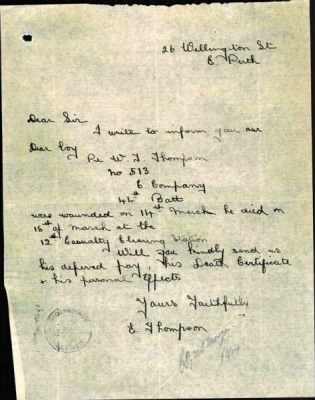 26 Wellington St
E. Perth
Dear Sir
I write to inform you our
Dear boy Pte W. T. Thompson
No 513
E Company
44th Batt
was wounded on 14th March he died on
15th of March at the
12th Casualty Clearing Station
Will you kindly send us
his deferred pay, his Death Certificate
& his personal Effects
Yours Faithfully
E Thompson